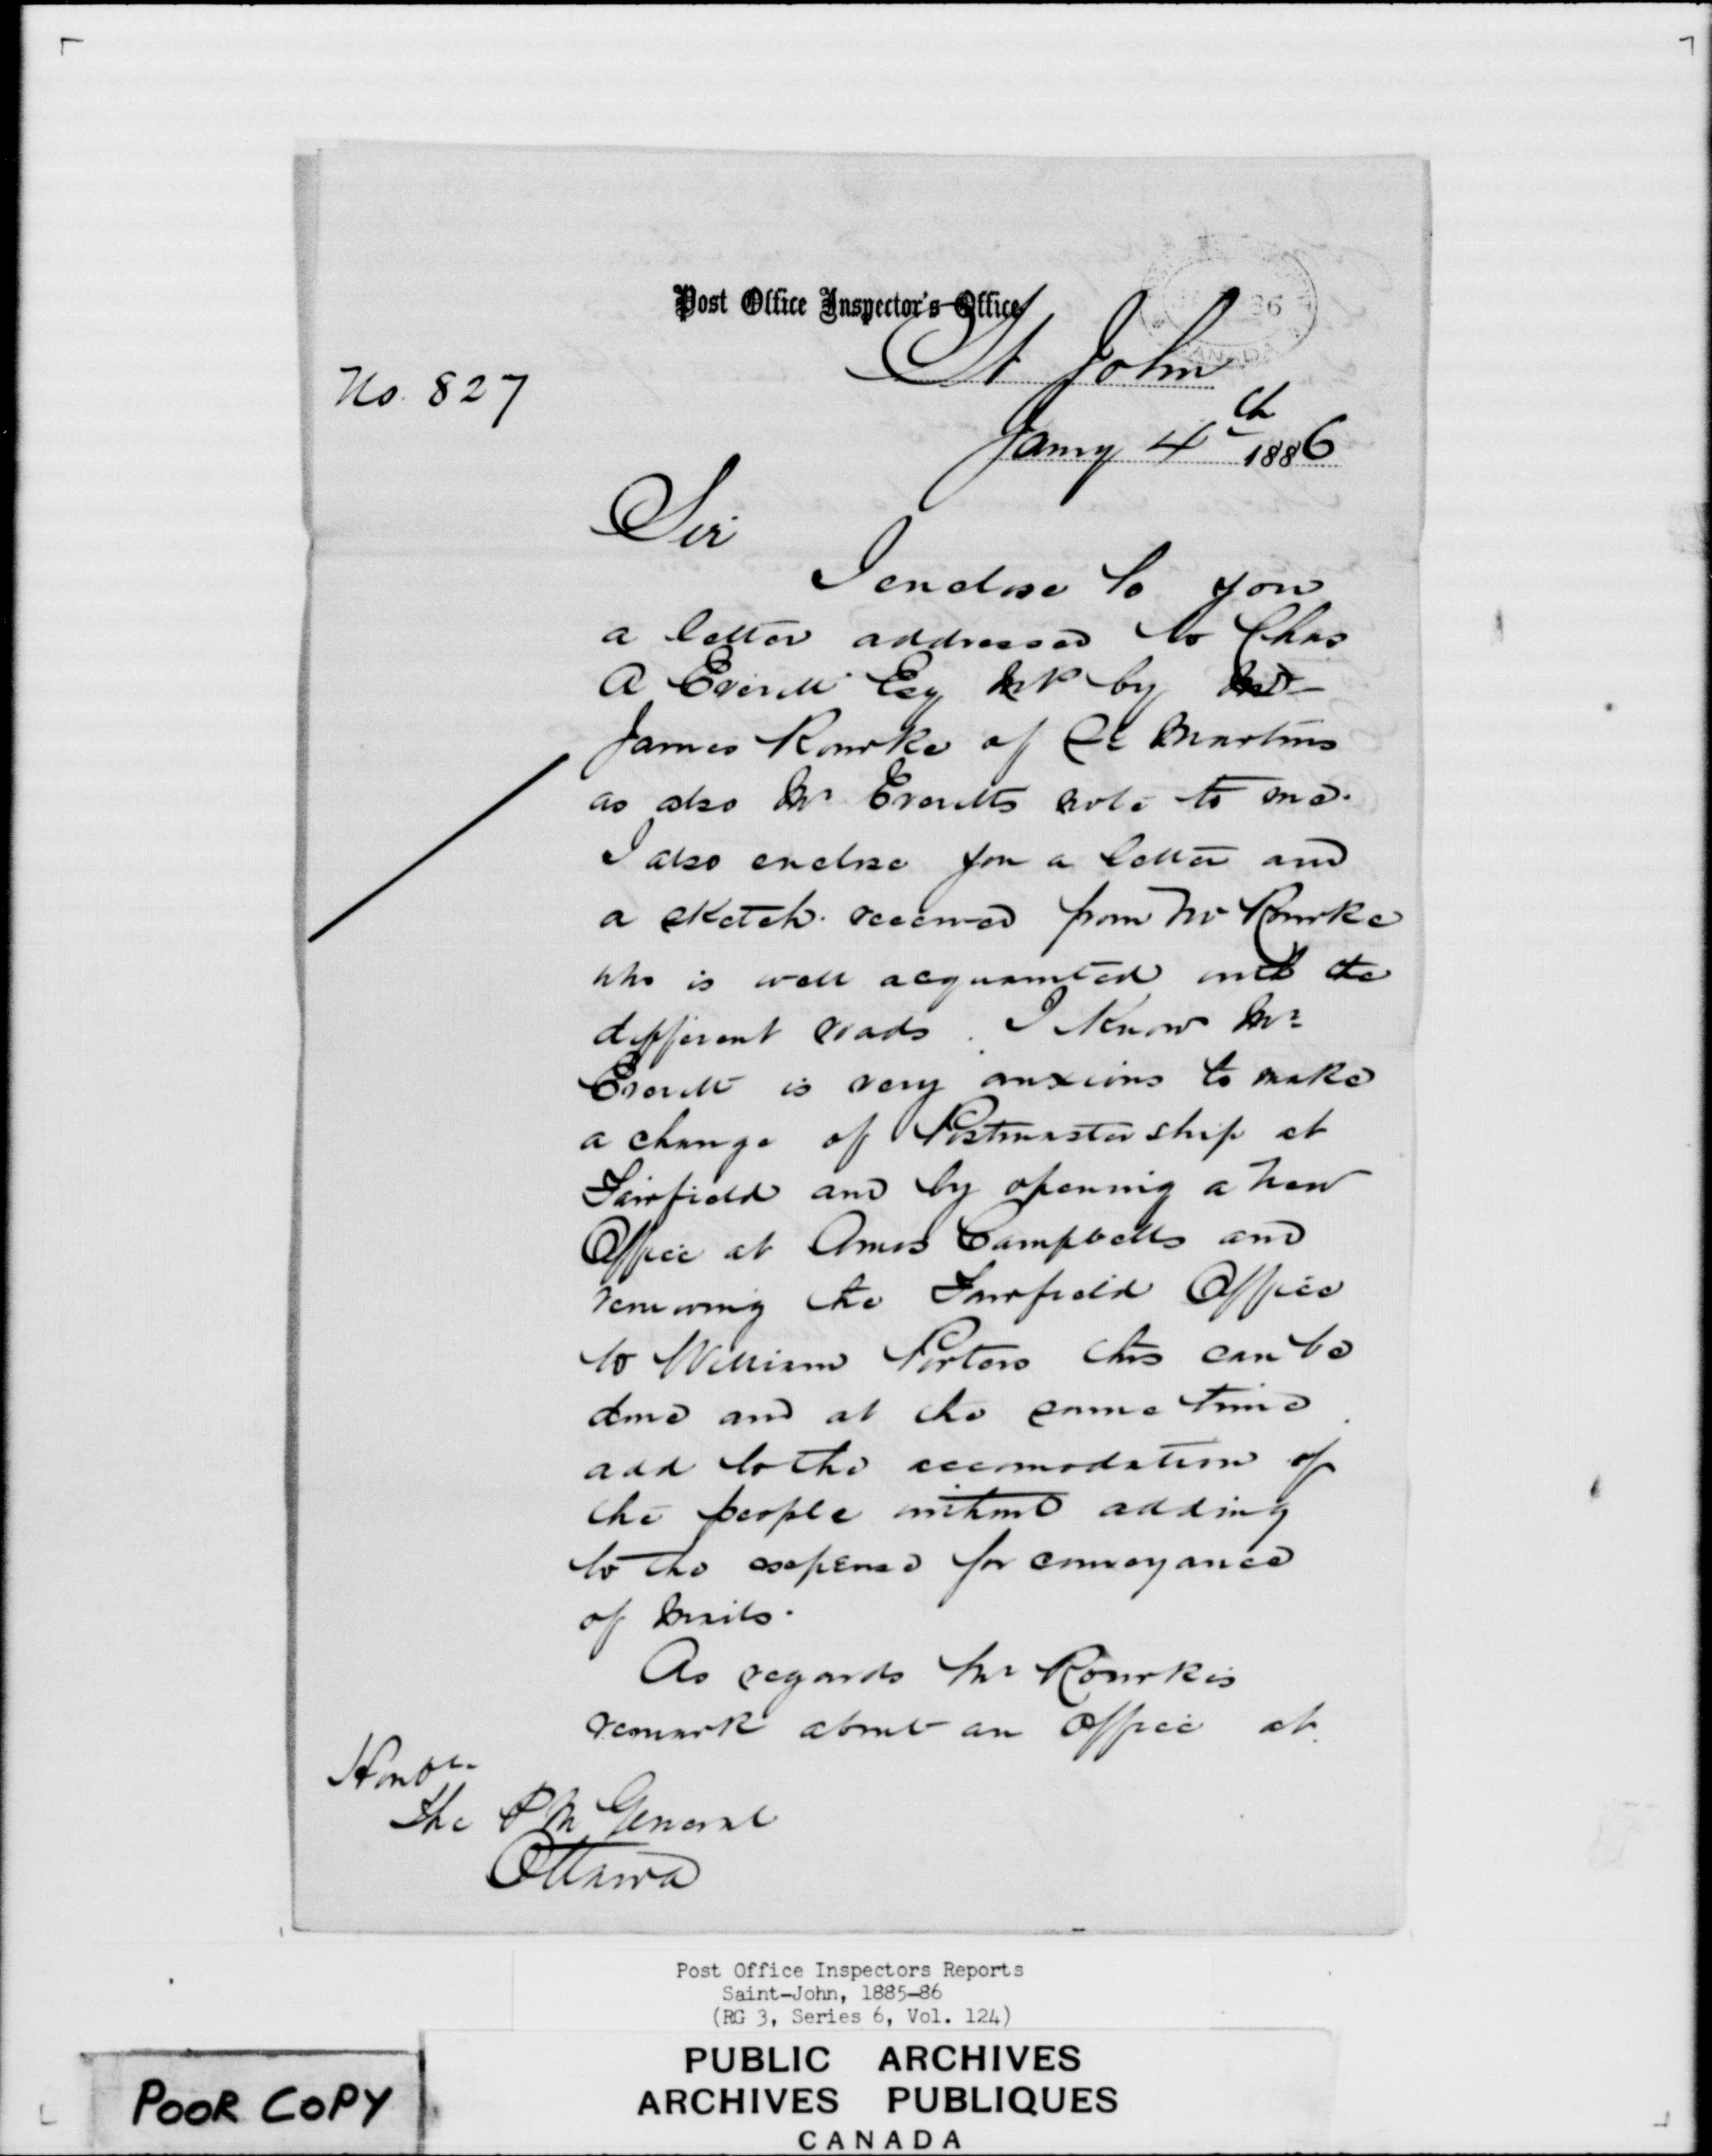 Post Office Inspector's Office
86
CANADA
St John
No. 827
Jany 4th 1886
Sir
I enclose to you
a letter addressed to Chas
A Everett Esq MP by Mr
James Rourke of St Martins
as also Mr Everetts note to me.
I also enclose you a letter and
a sketch received from Mr Rourke
who is well acquainted with the
different roads. I know Mr
Everett is very anxious to make
a change of Postmastership at
Fairfield and by opening a new
Office at Amos Campbells and
removing the Fairfield Office
to William Porters this can be
done and at the same time
add to the accomodation of
the people without adding
to the expense for conveyance
of Mails.
As regards Mr Rourkes
remark about an Office at
Honble
The P M General
Ottawa
Post Office Inspectors Reports
Saint-John, 1885-86
(RG 3, Series 6, Vol. 124)
PUBLIC ARCHIVES
ARCHIVES PUBLIQUES
CANADA
POOR COPY